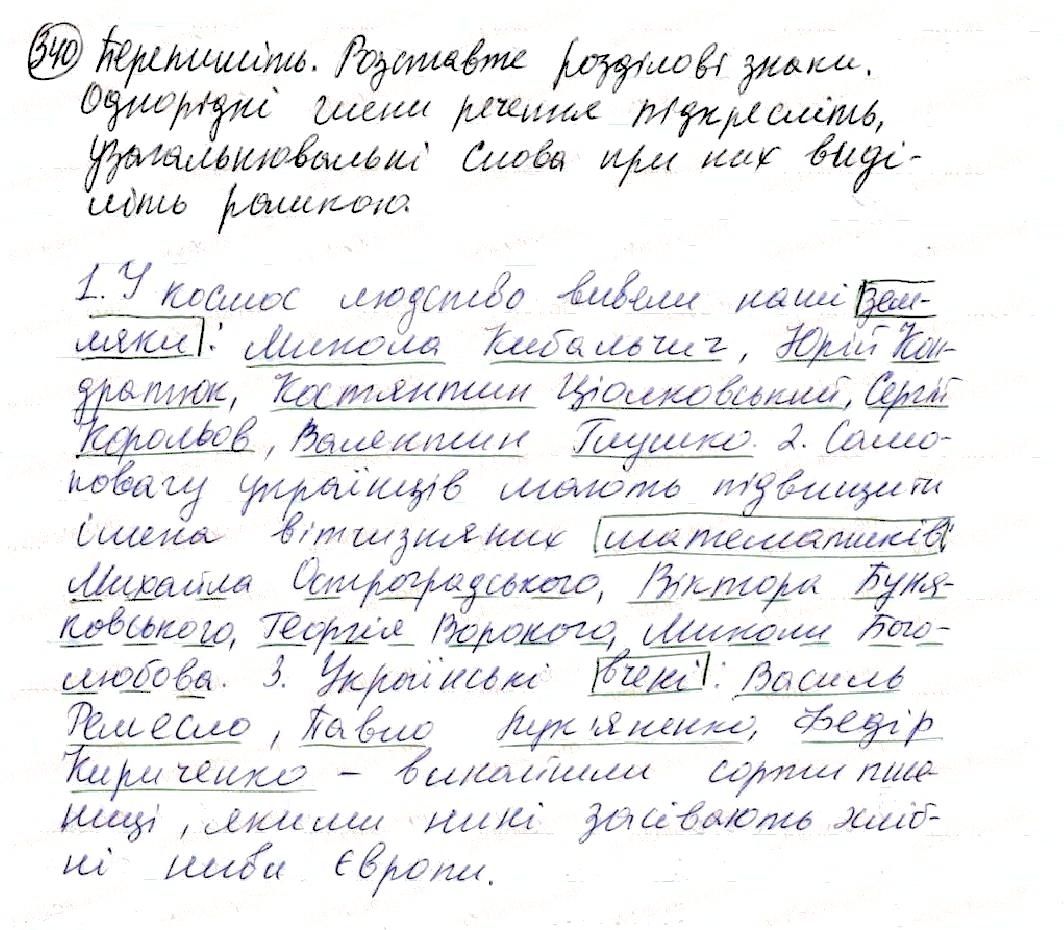 340 Перепишіть. Розставте розділові знаки.
Однорідні члени речення підкресліть,
узагальнювальні слова при них виді-
літь рамкою.
1. У космос людство вивели наші зем-
ляки: Микола Кибальчич, Юрій Кон-
дратюк, Костянтин Ціолковський, Сергій
Корольов, Валентин Глушко. 2. Само-
повагу українців мають підвищити
імена вітчизняних математиків:
Михайла Остроградського, Віктора Буня-
ковського, Георгія Вороного, Миколи Бого-
любова. 3. Українські вчені: Василь
Ремесло, Павло Лук'яненко, Федір
Кириченко – винайшли сорти пше
ниці, якими нині засівають хліб-
ні ниви Європи.